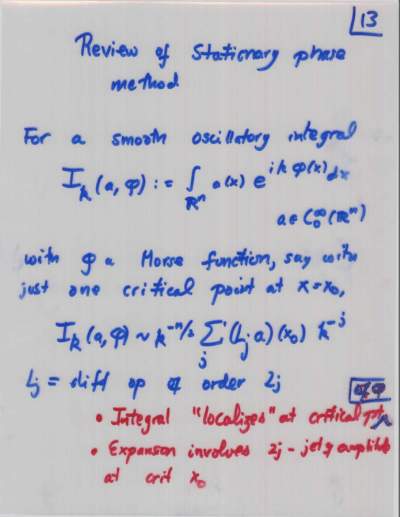 13
Review of Stationary phase
method
For a smooth oscillatory integral
I_k(a, φ) := ∫_{ℝⁿ} a(x) e^{ikφ(x)} dx
a ∈ C₀^∞(ℝⁿ)
with φ a Morse function, say with
just one critical point at x = x₀,
I_k(a, φ) ~ k^{-n/2} Σ_j (L_j a)(x₀) k^{-j}
L_j = diff op of order 2j
of φ
• Integral "localizes" at critical pt
• Expansion involves 2j - jet of amplitude
at crit x₀